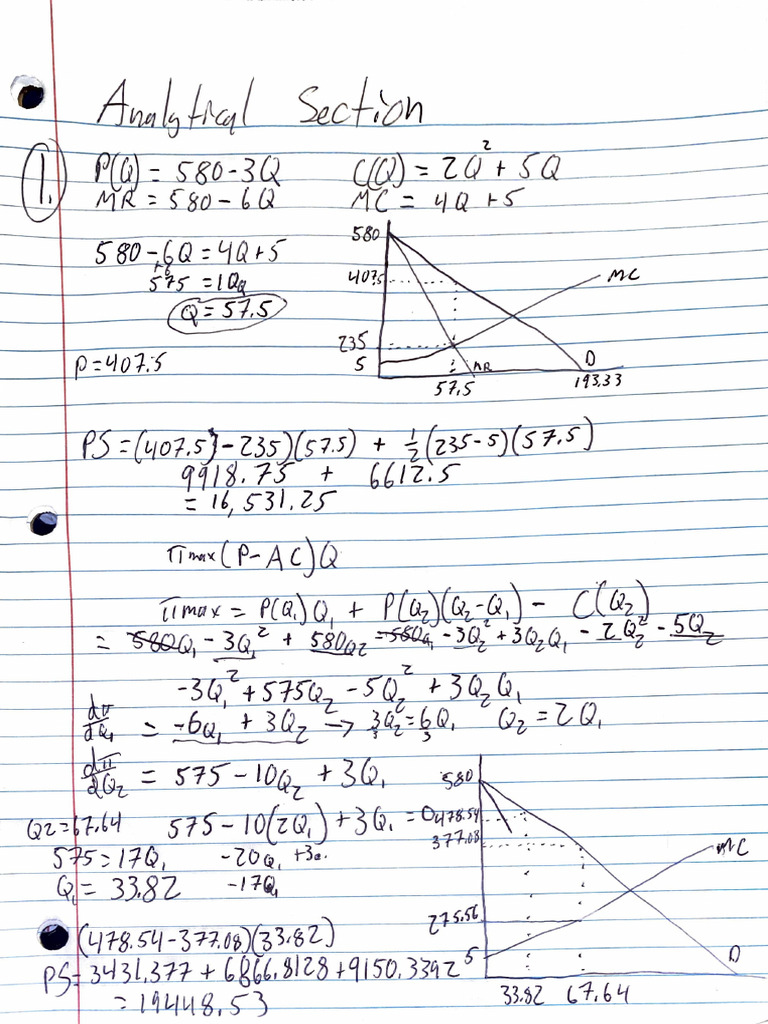 Analytical Section
1. P(Q) = 580-3Q C(Q) = 2Q² + 5Q
MR = 580-6Q MC = 4Q+5
580-6Q = 4Q+5
+6
575 = 10Q
Q = 57.5
P=407.5
580
407.5
235
5
MC
MR
D
57.5
193.33
PS = (407.5)-235)(57.5) + ½(235-5)(57.5)
9918.75 + 6612.5
= 16,531.25
πmax(P-AC)Q
πmax = P(Q₁)Q₁ + P(Q₂)(Q₂-Q₁) - C(Q₂)
= 580Q₁ - 3Q₁² + 580Q₂ - 580Q₁ - 3Q₂² + 3Q₂Q₁ - 2Q₂² - 5Q₂
-3Q₁² + 575Q₂ - 5Q₂² + 3Q₂Q₁
dπ/dQ₁ = -6Q₁ + 3Q₂ → 3Q₂/3 = 6Q₁/3 Q₂ = 2Q₁
dπ/dQ₂ = 575 - 10Q₂ + 3Q₁
Q2=67.64 575-10(2Q₁) + 3Q₁ = 0
575 = 17Q₁ -20Q₁ +3Q₁
Q₁ = 33.82 -17Q₁
580
478.54
377.08
275.56
5
MC
D
33.82 67.64
(478.54-377.08)(33.82)
PS = 3431.377 + 6866.8128 + 9150.3392
= 19448.53